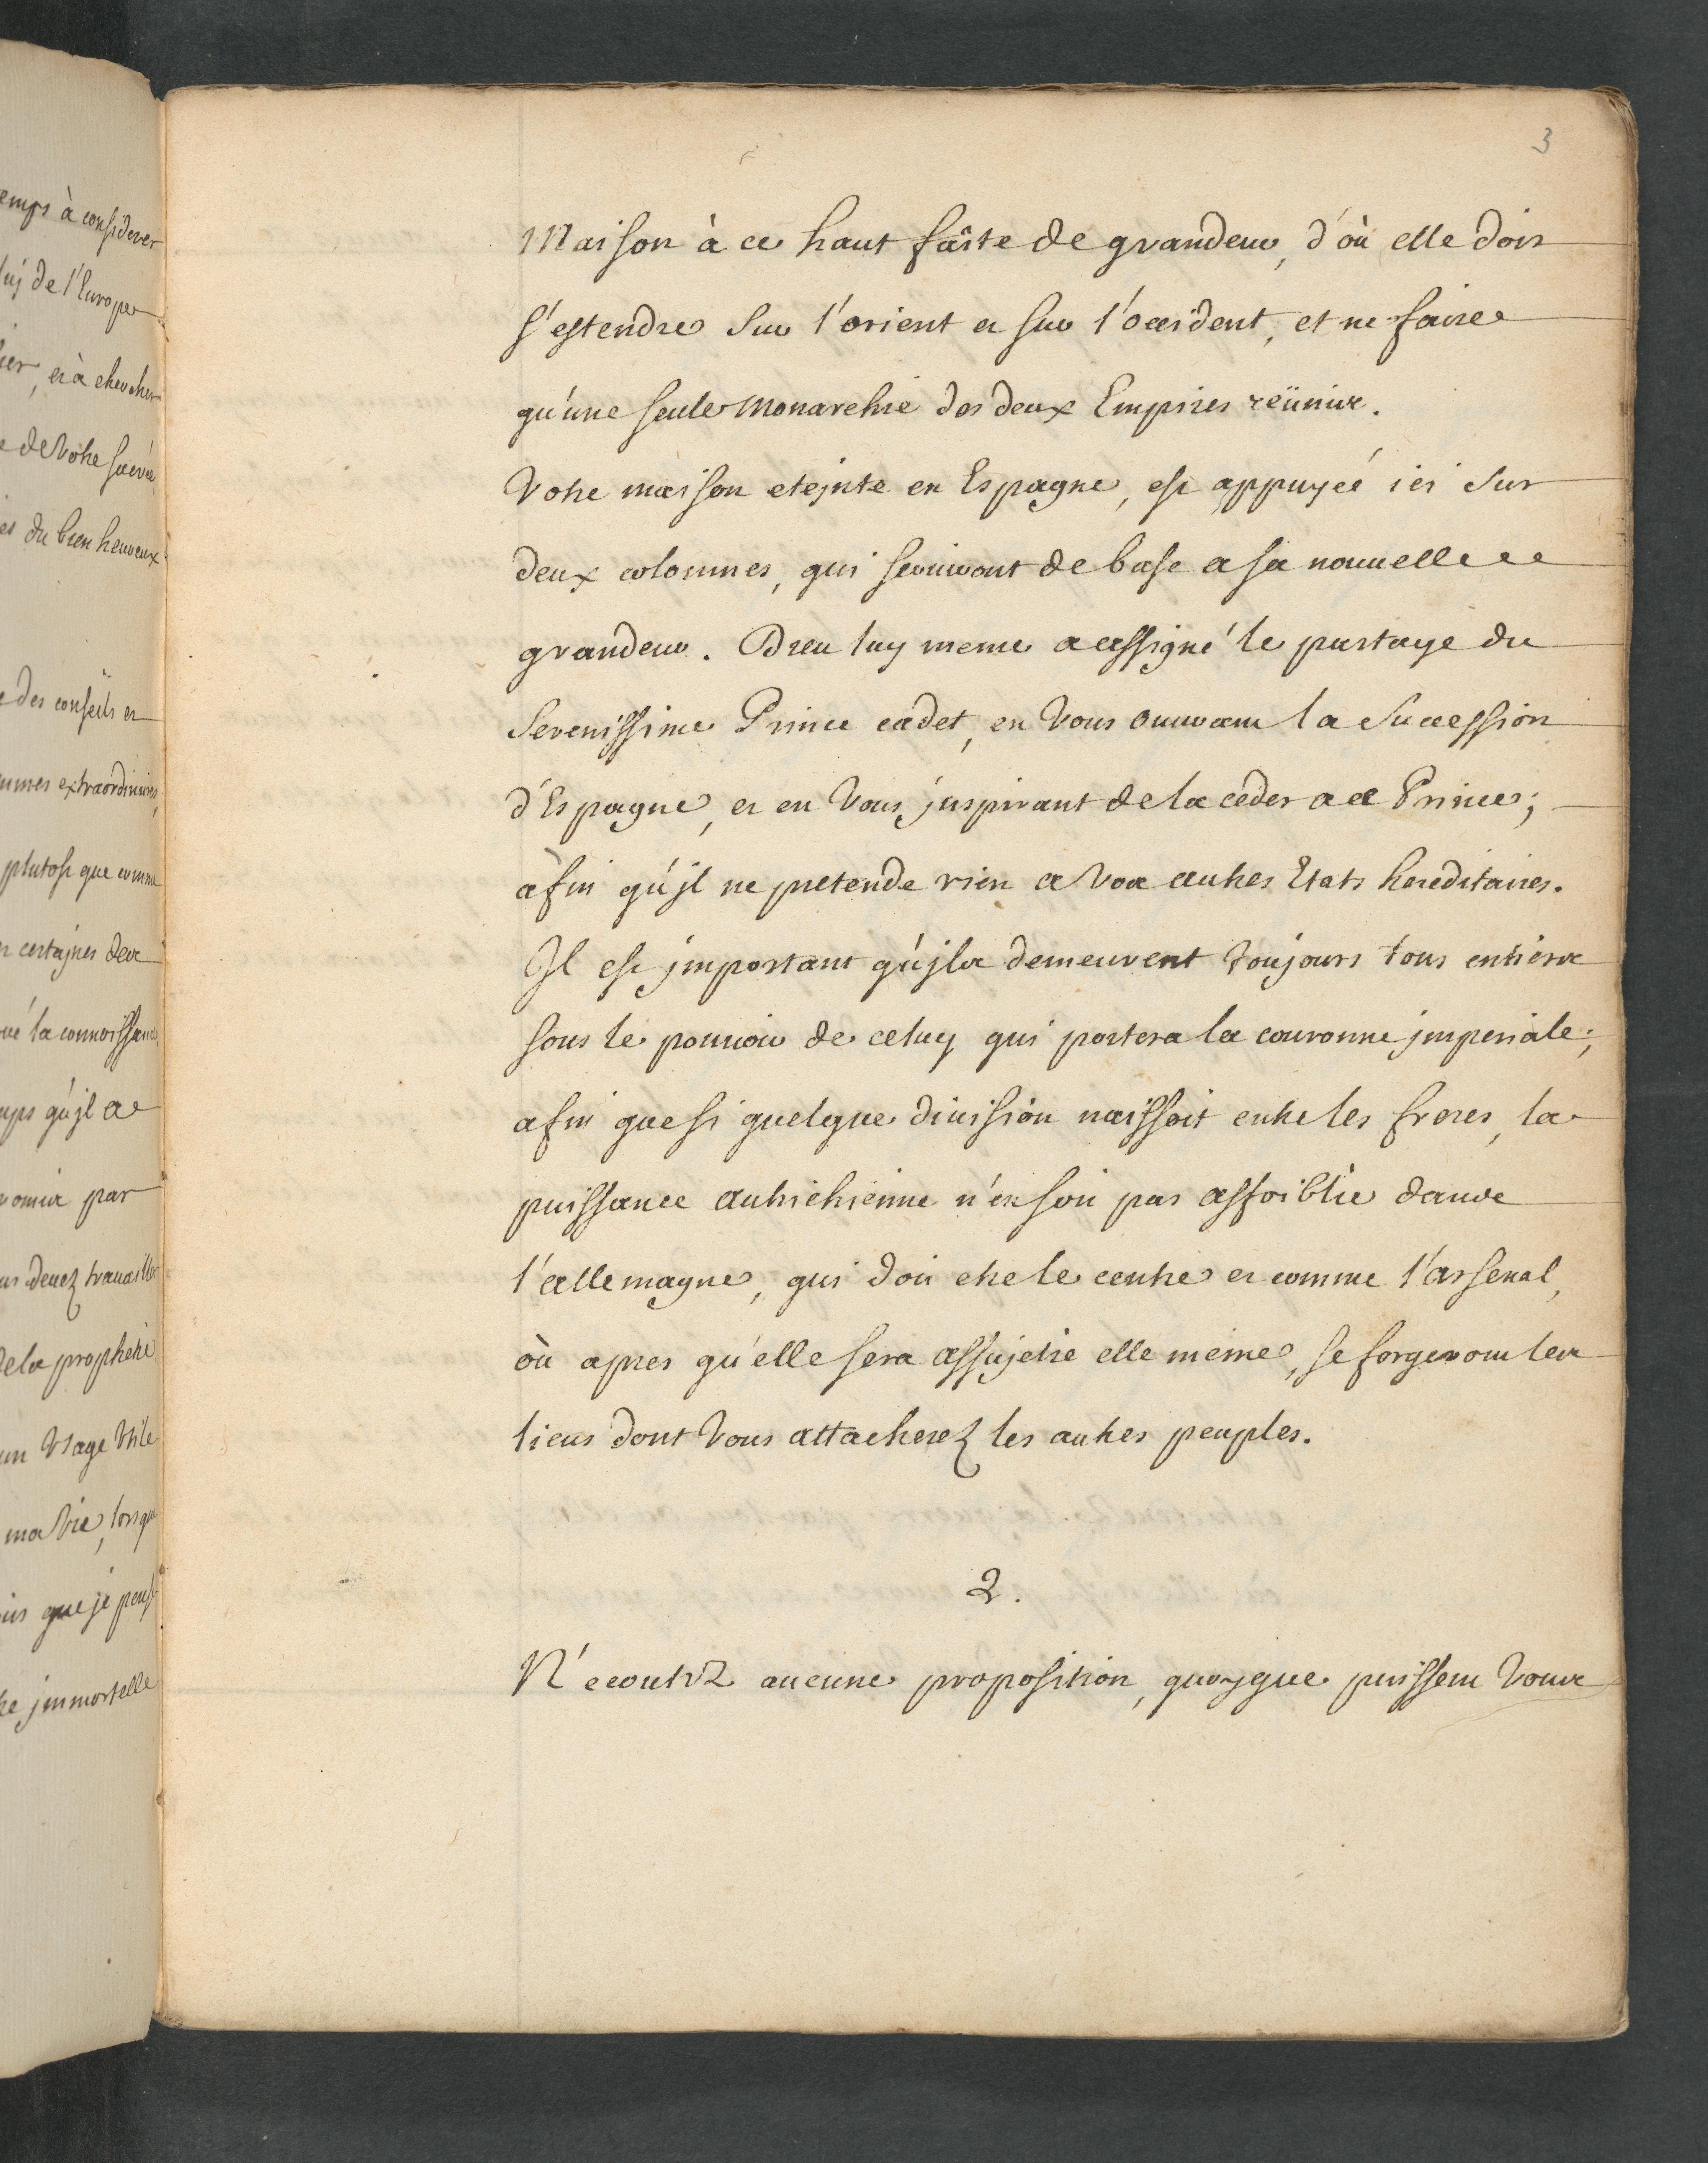 3
Maison à ce haut faîte de grandeur, d'où elle doit
s'estendre sur l'orient et sur l'occident, et ne faire
qu'une seule monarchie des deux Empires reünies.
Votre maison etejnte en Espagne, est appuyée ici sur
deux colomnes, qui serviront de base a sa nouuelle
grandeur. Dieu luy meme a assigné le partage du
Serenissime Prince cadet, en Vous ouurant la Succession
d'Espagne, et en Vous jnspirant de la ceder a ce Prince;
afin qu'jl ne pretende rien a vos autres Etats hereditaires.
Jl est jmportant qu'jls demeurent toujours tous entiers
sous le pouuoir de celuy qui portera la couronne jmperiale;
afin que si quelque diuision naissoit entre les freres, la
puissance autrichienne n'en soit pas affoiblie dans
l'allemagne, qui doit etre le centre et comme l'arsenal,
où apres qu'elle sera assujetie elle meme, se forgeront les
liens dont Vous attacherez les autres peuples.
2.
N'ecoutez aucune proposition, quoyque puissent Vous
emps à considerer
luj de l'Europe
lier, et à chercher
e de Votre sacrée
es du bien heureux
e des conseils et
ummes extraordinaires,
plutost que comme
n certajnes des
ué la connoissance
mps qu'jl a
romis par
us deuez trauailler
de la prophetie
un Vsage Vtile
ma Vie, lorsque
uis que je pense
re jmmortelle